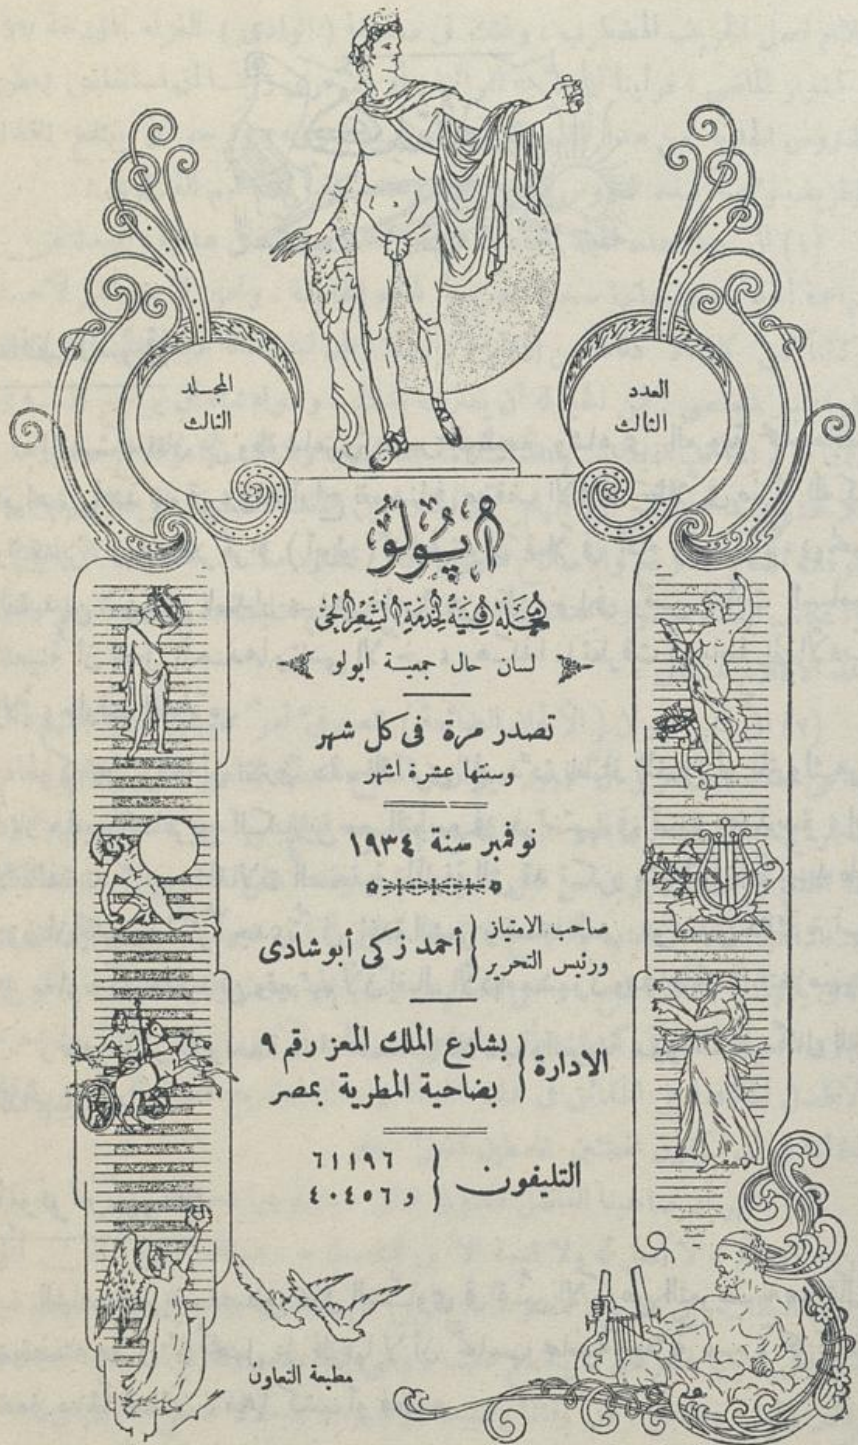 العدد
الثالث
المجلد
الثالث
أپولو
مجلة فنية لخدمة الشعر الحي
لسان حال جمعية ابولو
تصدر مرة فى كل شهر
وسنتها عشرة اشهر
نوفمبر سنة ١٩٣٤
صاحب الامتياز
ورئيس التحرير { أحمد زكى أبو شادى
الادارة { بشارع الملك المعز رقم ٩
بضاحية المطرية بمصر
التليفون { ٦١١٩٦
و ٤٠٤٥٦
مطبعة التعاون